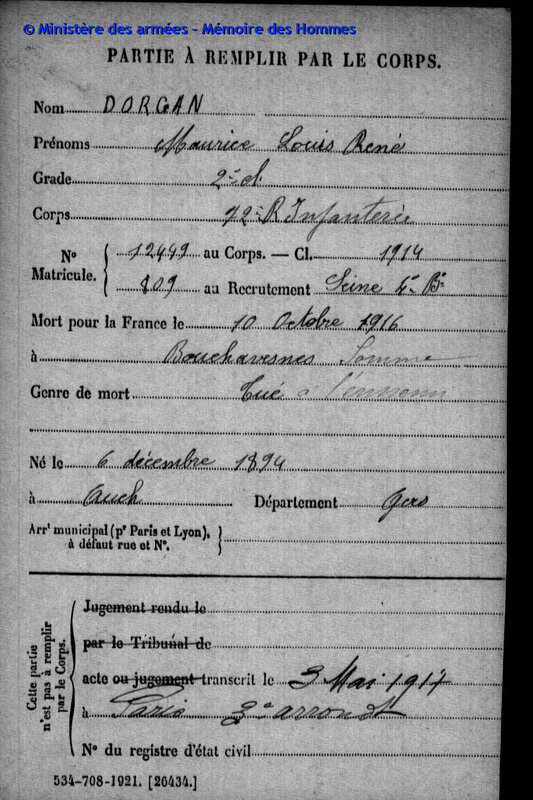 © Ministère des armées - Mémoire des Hommes
PARTIE À REMPLIR PAR LE CORPS.
Nom DORGAN
Prénoms Maurice Louis René
Grade 2e cl.
Corps 72e R Infanterie
No Matricule. { 12499 au Corps. — Cl. 1914
809 au Recrutement Seine 4e Bn
Mort pour la France le 10 Octobre 1916
à Bouchavesnes Somme
Genre de mort Tué à l'ennemi
Né le 6 décembre 1894
à Auch Département Gers
Arrt municipal (pr Paris et Lyon), à défaut rue et No. }
Cette partie n'est pas à remplir par le Corps. {
Jugement rendu le
par le Tribunal de
acte ou jugement transcrit le 3 Mai 1917
à Paris 3e arrondt
No du registre d'état civil
534-708-1921. [26434.]